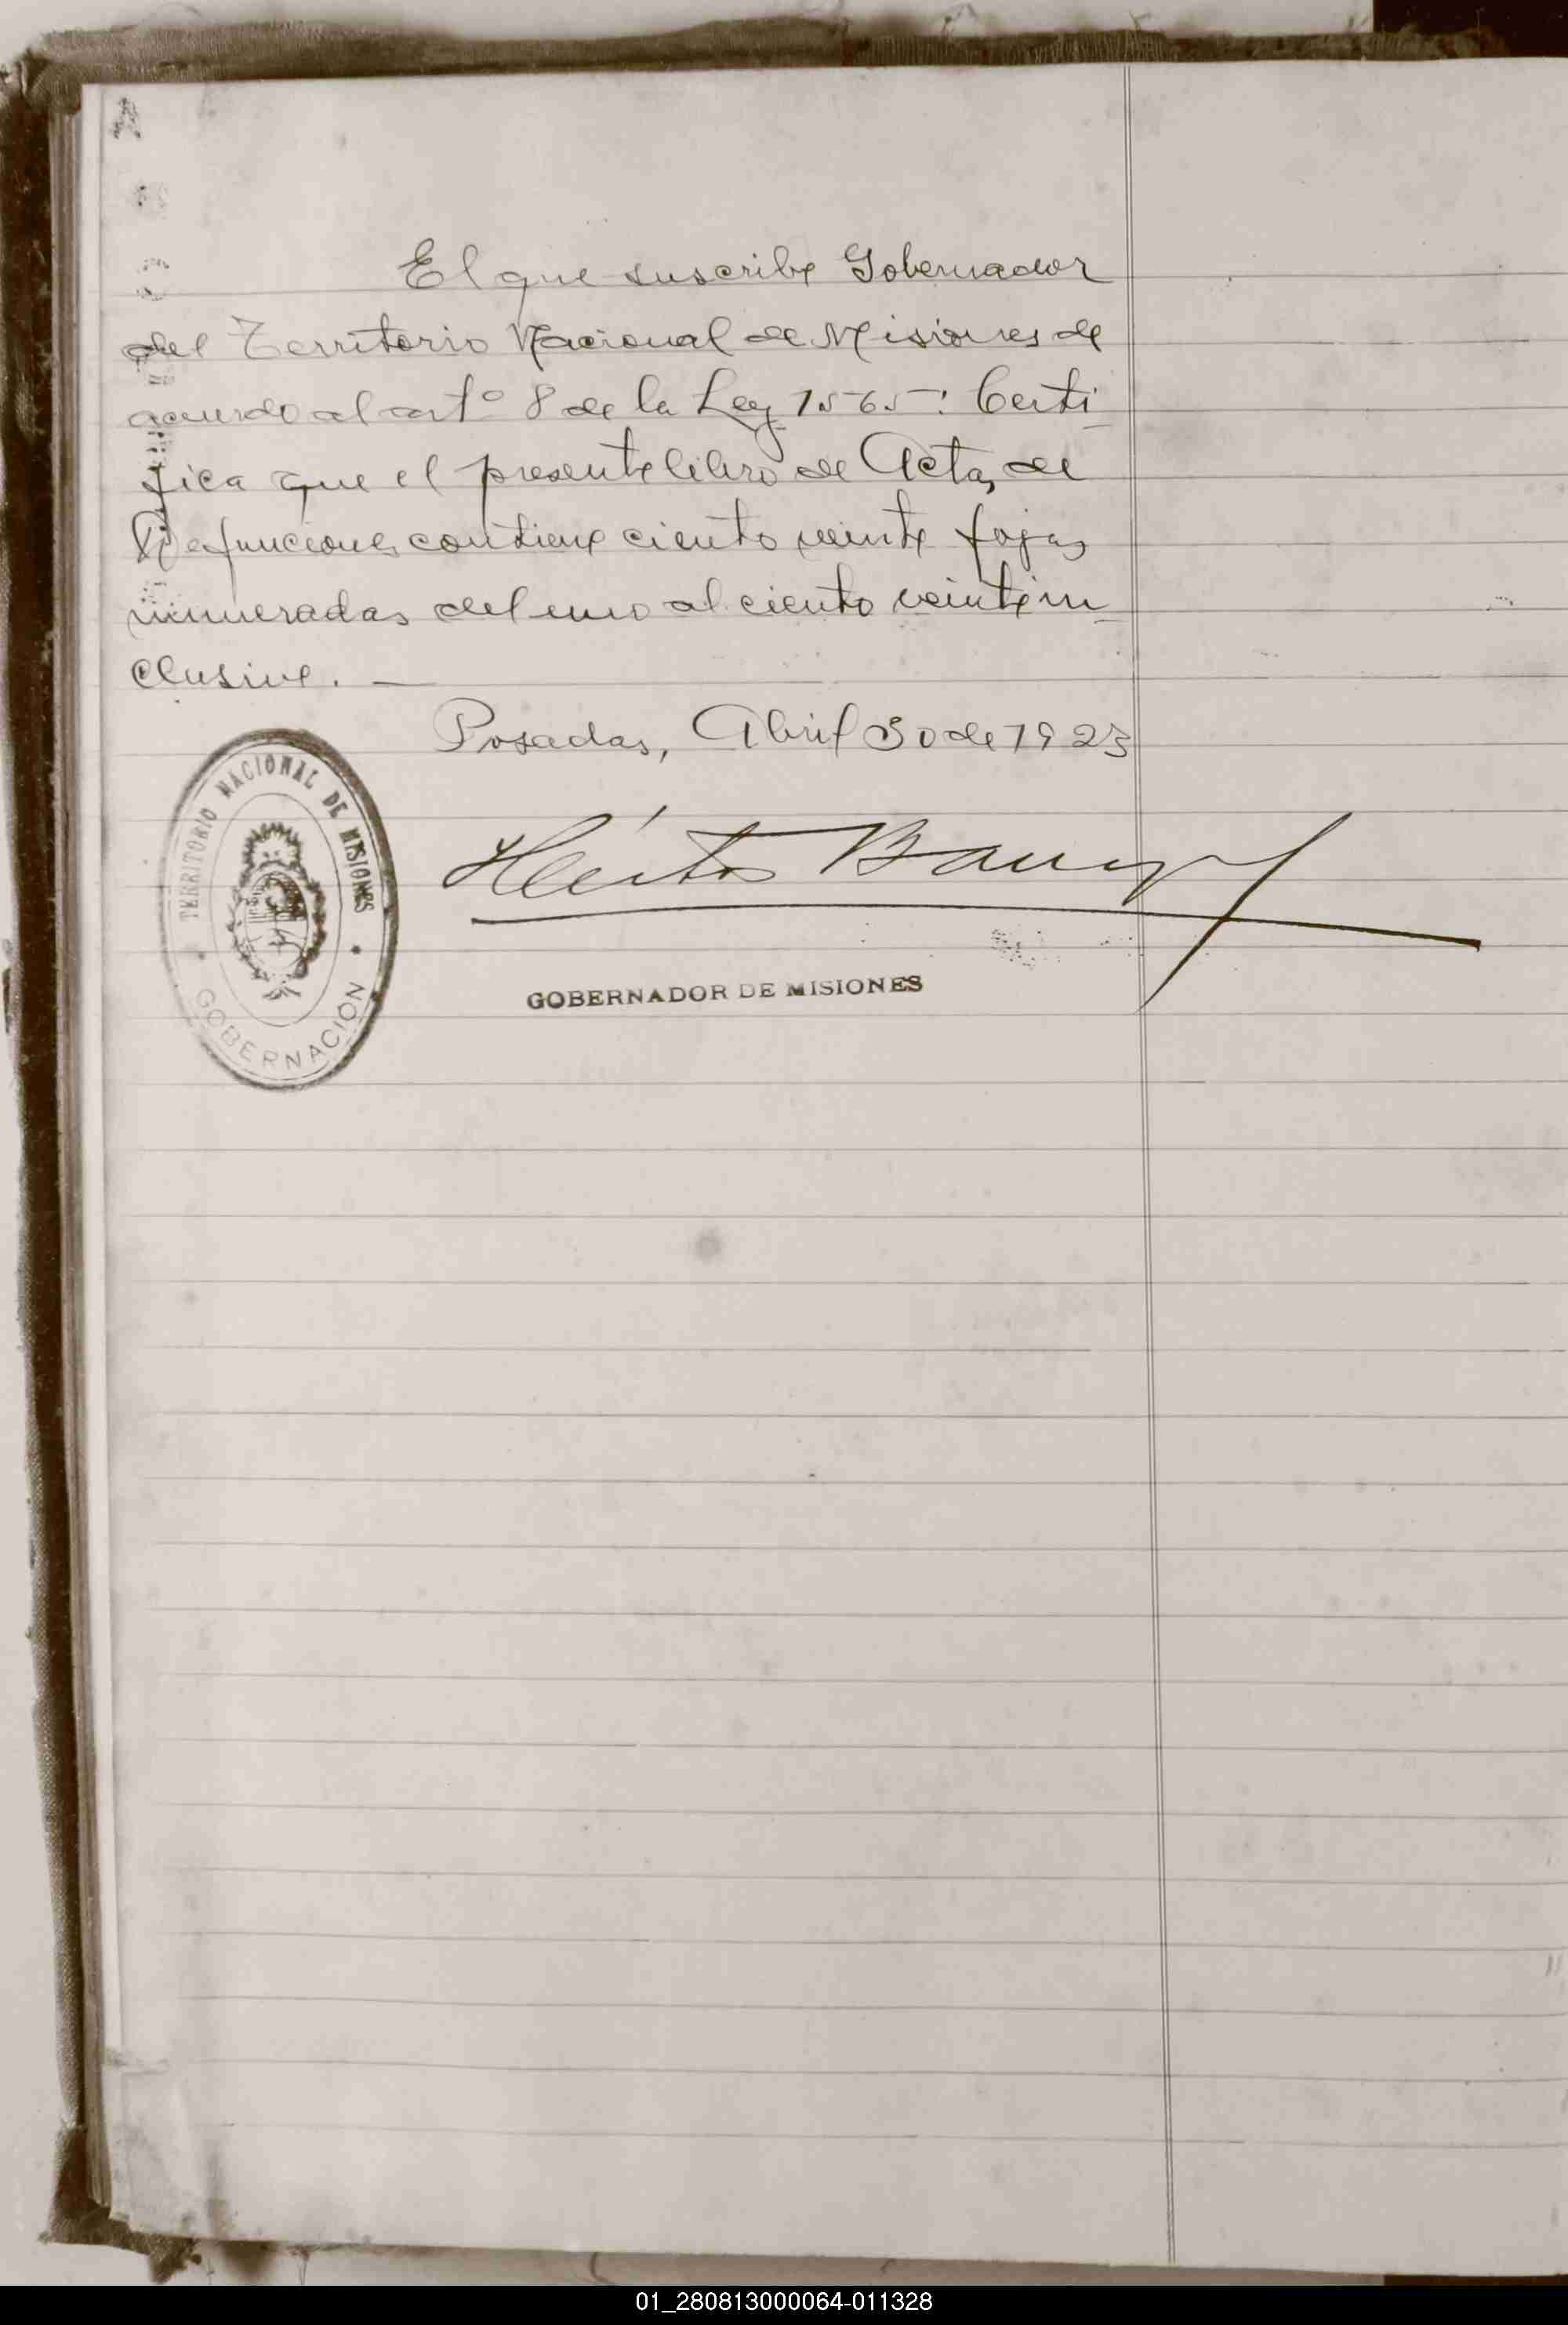 El que suscribe Gobernador
del Territorio Nacional de Misiones de
acuerdo al artº 8 de la Ley 1565: Certi
fica que el presente libro de Actas de
Defunciones contiene ciento veinte fojas
numeradas del uno al ciento veinte in
clusive. —
Posadas, Abril 30 de 1923
TERRITORIO NACIONAL DE MISIONES
GOBERNACION
Héctor Barreyro
GOBERNADOR DE MISIONES
01_280813000064-011328